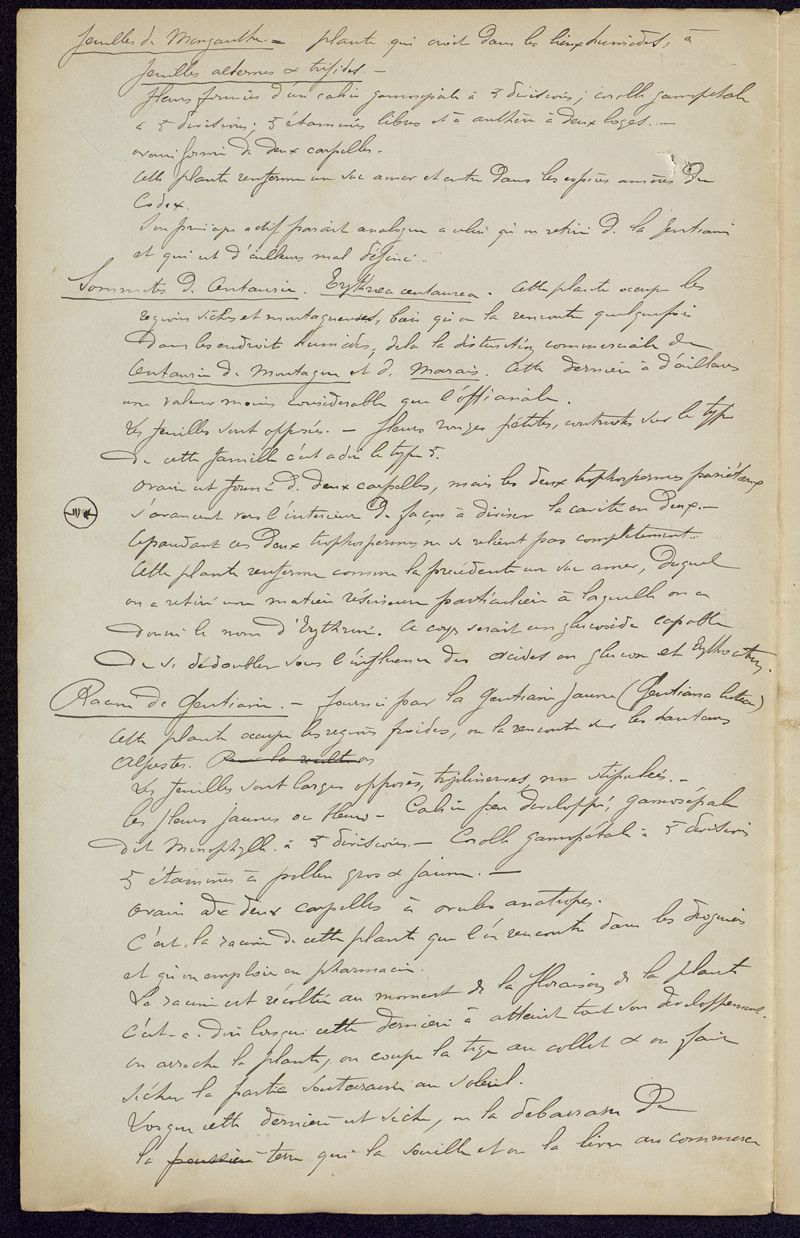 feuilles de Menyanthe. = plante qui croit dans les lieux humides, à
feuilles alternes & trifides. —
fleurs formées d'un calice gamosépale à 5 divisions; corolle gamopétale
à 5 divisions; 5 étamines libres et à anthère à deux loges. —
ovaire formé de deux carpelles.
Cette plante renferme un suc amer et entre dans les espèces amères du
Codex.
Son principe actif parait analogue a celui qu'on retire de la gentiane
et qui est d'ailleurs mal défini. —
Sommités de Centaurée. Erythrea centaurea. Cette plante occupe les
régions sèches et montagneuses, bien qu'on la rencontre quelquefois
Dans les endroits humides; delà la distinction commerciale de
Centaurée de Montagne et de Marais. Cette dernière a d'ailleurs
une valeur moins considérable que l'officinale.
Les feuilles sont opposées. — fleurs rouges petites, construites sur le type
De cette famille c'est à dire le type 5.
Ovaire est formé de deux carpelles, mais les deux trophospermes pariétaux
s'avancent vers l'intérieur de façon à diviser la cavité en deux. —
Cependant ces deux trophospermes ne se relient pas complètement.
Cette plante renferme comme la précédente un suc amer, duquel
on a retiré une matière résineuse particulière à laquelle on a
donné le nom d'Erythrine. Ce corps serait un glucoside capable
De se dédoubler sous l'influence des acides en glucose et
Racine de Gentiane. — fournie par la Gentiane jaune (Gentiana lutea)
Cette plante occupe les régions froides, on la rencontre sur les hauteurs
Alpestres. Pour la récolte on
Les feuilles sont larges opposées, triplinerves, non stipulées. —
les fleurs jaunes ou bleues — Calice peu développé, gamosépale
Dit Monophylle à 5 divisions. — Corolle gamopétale à 5 divisions
5 étamines à pollen gros & jaune. —
Ovaire à deux carpelles à ovules anatropes.
C'est la racine de cette plante que l'on rencontre dans les drogueries
et qu'on emploie en pharmacie.
La racine est récoltée au moment de la floraison de la plante
C'est-a-dire lorsque cette dernière à atteint tout son développement.
on arrache la plante, on coupe la tige au collet & on fait
sécher la partie souterraine au soleil.
Lorsque cette dernière est sèche, on la débarrasse de
la poussière terre qui la souille et on la livre au commerce